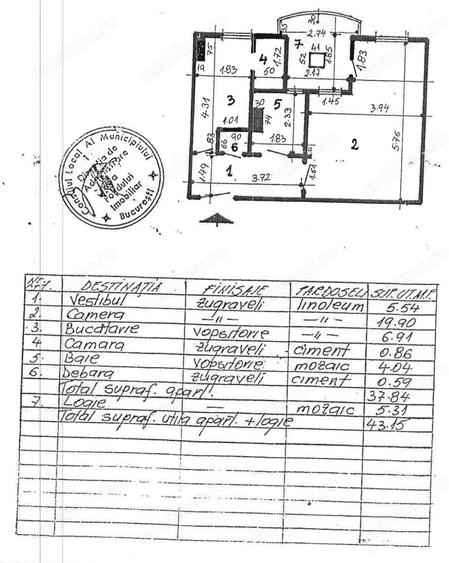 2
2.74
7
41
52
1.85
2.17
1.83
75
19
4
1.72
50
1.83
1.45
3.94
4.31
3
30
5
2.33
74
1.01
90
66
6
1.83
2
5.76
63
1
1.49
3.72
1.61
Consiliul Local Al Municipiului
Bucuresti
Imobiliar
DESTINAȚIA FINISAJE PARDOSELI SUP.UT.MP.
1. Vestibul zugraveli linoleum 5.54
2. Camera —"— —"— 19.90
3. Bucatarie vopsitorie —"— 6.91
4 Camara zugraveli ciment 0.86
5. Baie vopsitorie mozaic 4.04
6. Debara zugraveli ciment 0.59
Total supraf. apart. 37.84
7. Logie — mozaic 5.31
Total supraf. utila apart. + logie 43.15